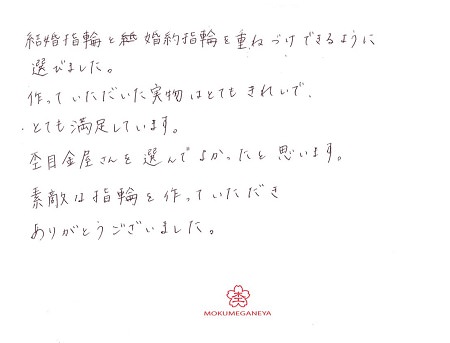 結婚指輪と婚約指輪を重ねづけできるように
選びました。
作っていただいた実物はとてもきれいで、
とても満足しています。
杢目金屋さんを選んでよかったと思います。
素敵な指輪を作っていただき
ありがとうございました。
杢
MOKUMEGANEYA